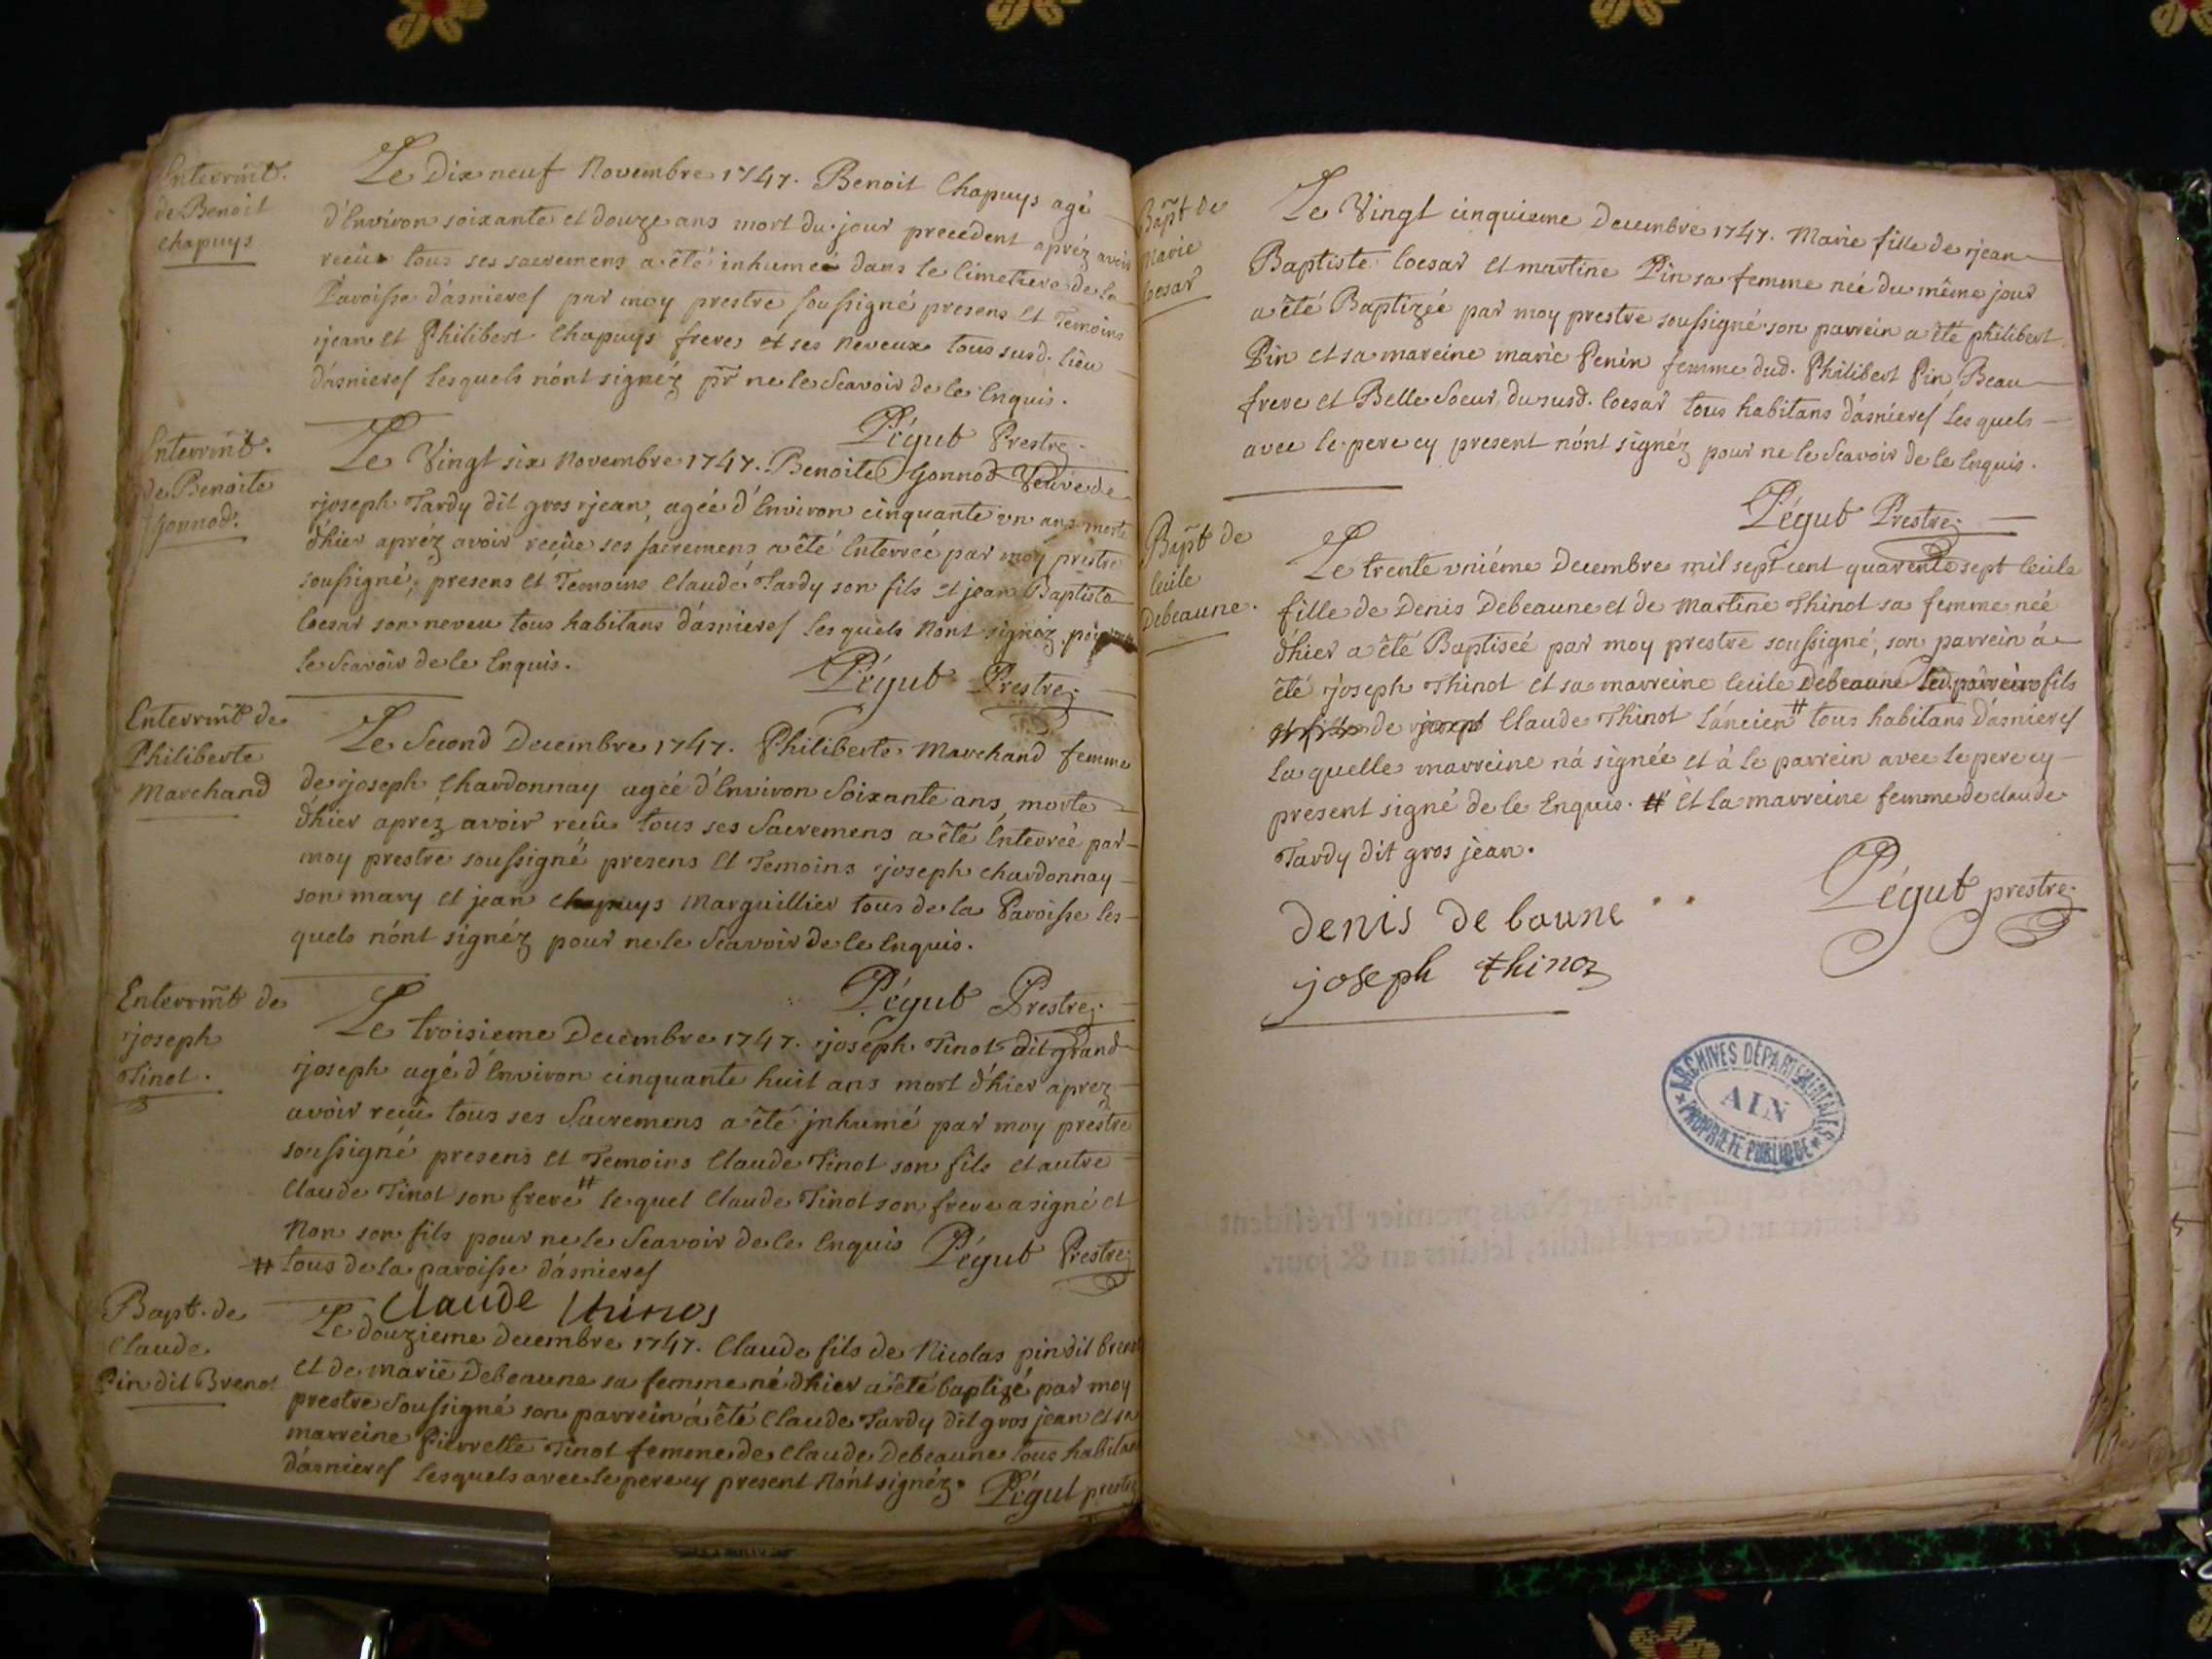 Enterrmt.
de Benoit
Chapuys
Le Dix neuf Novembre 1747. Benoit Chapuys agé
d'Environ soixante et douze ans mort du jour precedent apréz avoir
reçûe tous ses sacremens a êté inhumeé dans le Cimetiere de la
Paroisse d'asnieres par moy prestre soussigné presens et Temoins
jean et Philibert Chapuys freres et ses Neveux tous susd. lieu
d'asnieres lesquels n'ont signéz pr ne le Scavoir de ce Enquis.
Pégut Prestre
Enterrmt.
de Benoite
Gonnod.
Le Vingt six Novembre 1747. Benoite Gonnod Veuve de
joseph Tardy dit gros jean, ageé d'Environ cinquante un ans morte
d'hier apréz avoir reçûe ses sacremens a êté Enterreé par moy prestre
soussigné, presens et Temoins Claude Tardy son fils et jean Baptiste
Coesar son neveu tous habitans d'asnieres les quels n'ont signéz
le Scavoir de ce Enquis.
Pégut Prestre
Enterrmt de
Philiberte
Marchand
Le Second Decembre 1747. Philiberte Marchand femme
de joseph Chardonnay ageé d'Environ Soixante ans, morte
d'hier apréz avoir reçûe tous ses Sacremens a êté Enterreé par
moy prestre soussigné presens et Temoins joseph chardonnay
son mary et jean Chapuys Marguillier tous de la Paroisse les
quels n'ont signéz pour ne le Scavoir de ce Enquis.
Pégut Prestre
Enterrmt de
joseph
Tinot.
Le troisieme Decembre 1747. joseph Tinot dit grand
joseph agé d'Environ cinquante huit ans mort d'hier aprez
avoir reçûe tous ses Sacremens a êté jnhumé par moy prestre
soussigné presens et Temoins Claude Tinot son fils et autre
Claude Tinot son frere # le quel Claude Tinot son frere a signé et
Non son fils pour ne le Scavoir de ce Enquis Pégut Prestre
# tous de la paroisse d'asnieres
Claude thinos
Bapt. de
Claude
Pin dit Brenot
Le douzieme decembre 1747. Claude fils de Nicolas pin dit brenot
et de marie Debeaune sa femme né d'hier a êté baptizé par moy
prestre Soussigné son parrein á êté Claude Tardy dit gros jean et sa
marreine Pierrette Tinot femme de Claude Debeaune tous habitans
d'asnieres lesquels avec le pere cy present N'ont signéz. Pégut prestre
Bapt de
Marie
Coesar
Le Vingt cinquieme Decembre 1747. Marie fille de jean
Baptiste Coesar et martine Pin sa femme neé du même jour
a êté Baptizeé par moy prestre soussigné son parrein a êté philibert
Pin et sa mareine marie Penin femme dud. Philibert Pin Beau
frere et Belle Soeur du susd. Coesar tous habitans d'asnieres les quels
avec le pere cy present n'ont signéz pour ne le Scavoir de ce Enquis.
Pégut Prestre
Bapt de
Cecile
Debeaune.
Le trente uniéme Decembre mil sept cent quarente sept Cecile
fille de Denis Debeaune et de Martine Thinot sa femme neé
d'hier a êté Baptiseé par moy prestre soussigné, son parrein á
êté joseph Thinot et sa marreine Cecile Debeaune led. parrein fils
et fille de joseph Claude Thinot l'áncien # tous habitans d'asnieres
la quelle marreine n'á signée et á le parrein avec le pere cy
present signé de ce Enquis. # et la marreine femme de claude
Tardy dit gros jean.
Pégut prestre
denis de baune
joseph thinoz
ARCHIVES DÉPARTEMENTALES
AIN
PROPRIÉTÉ PUBLIQUE